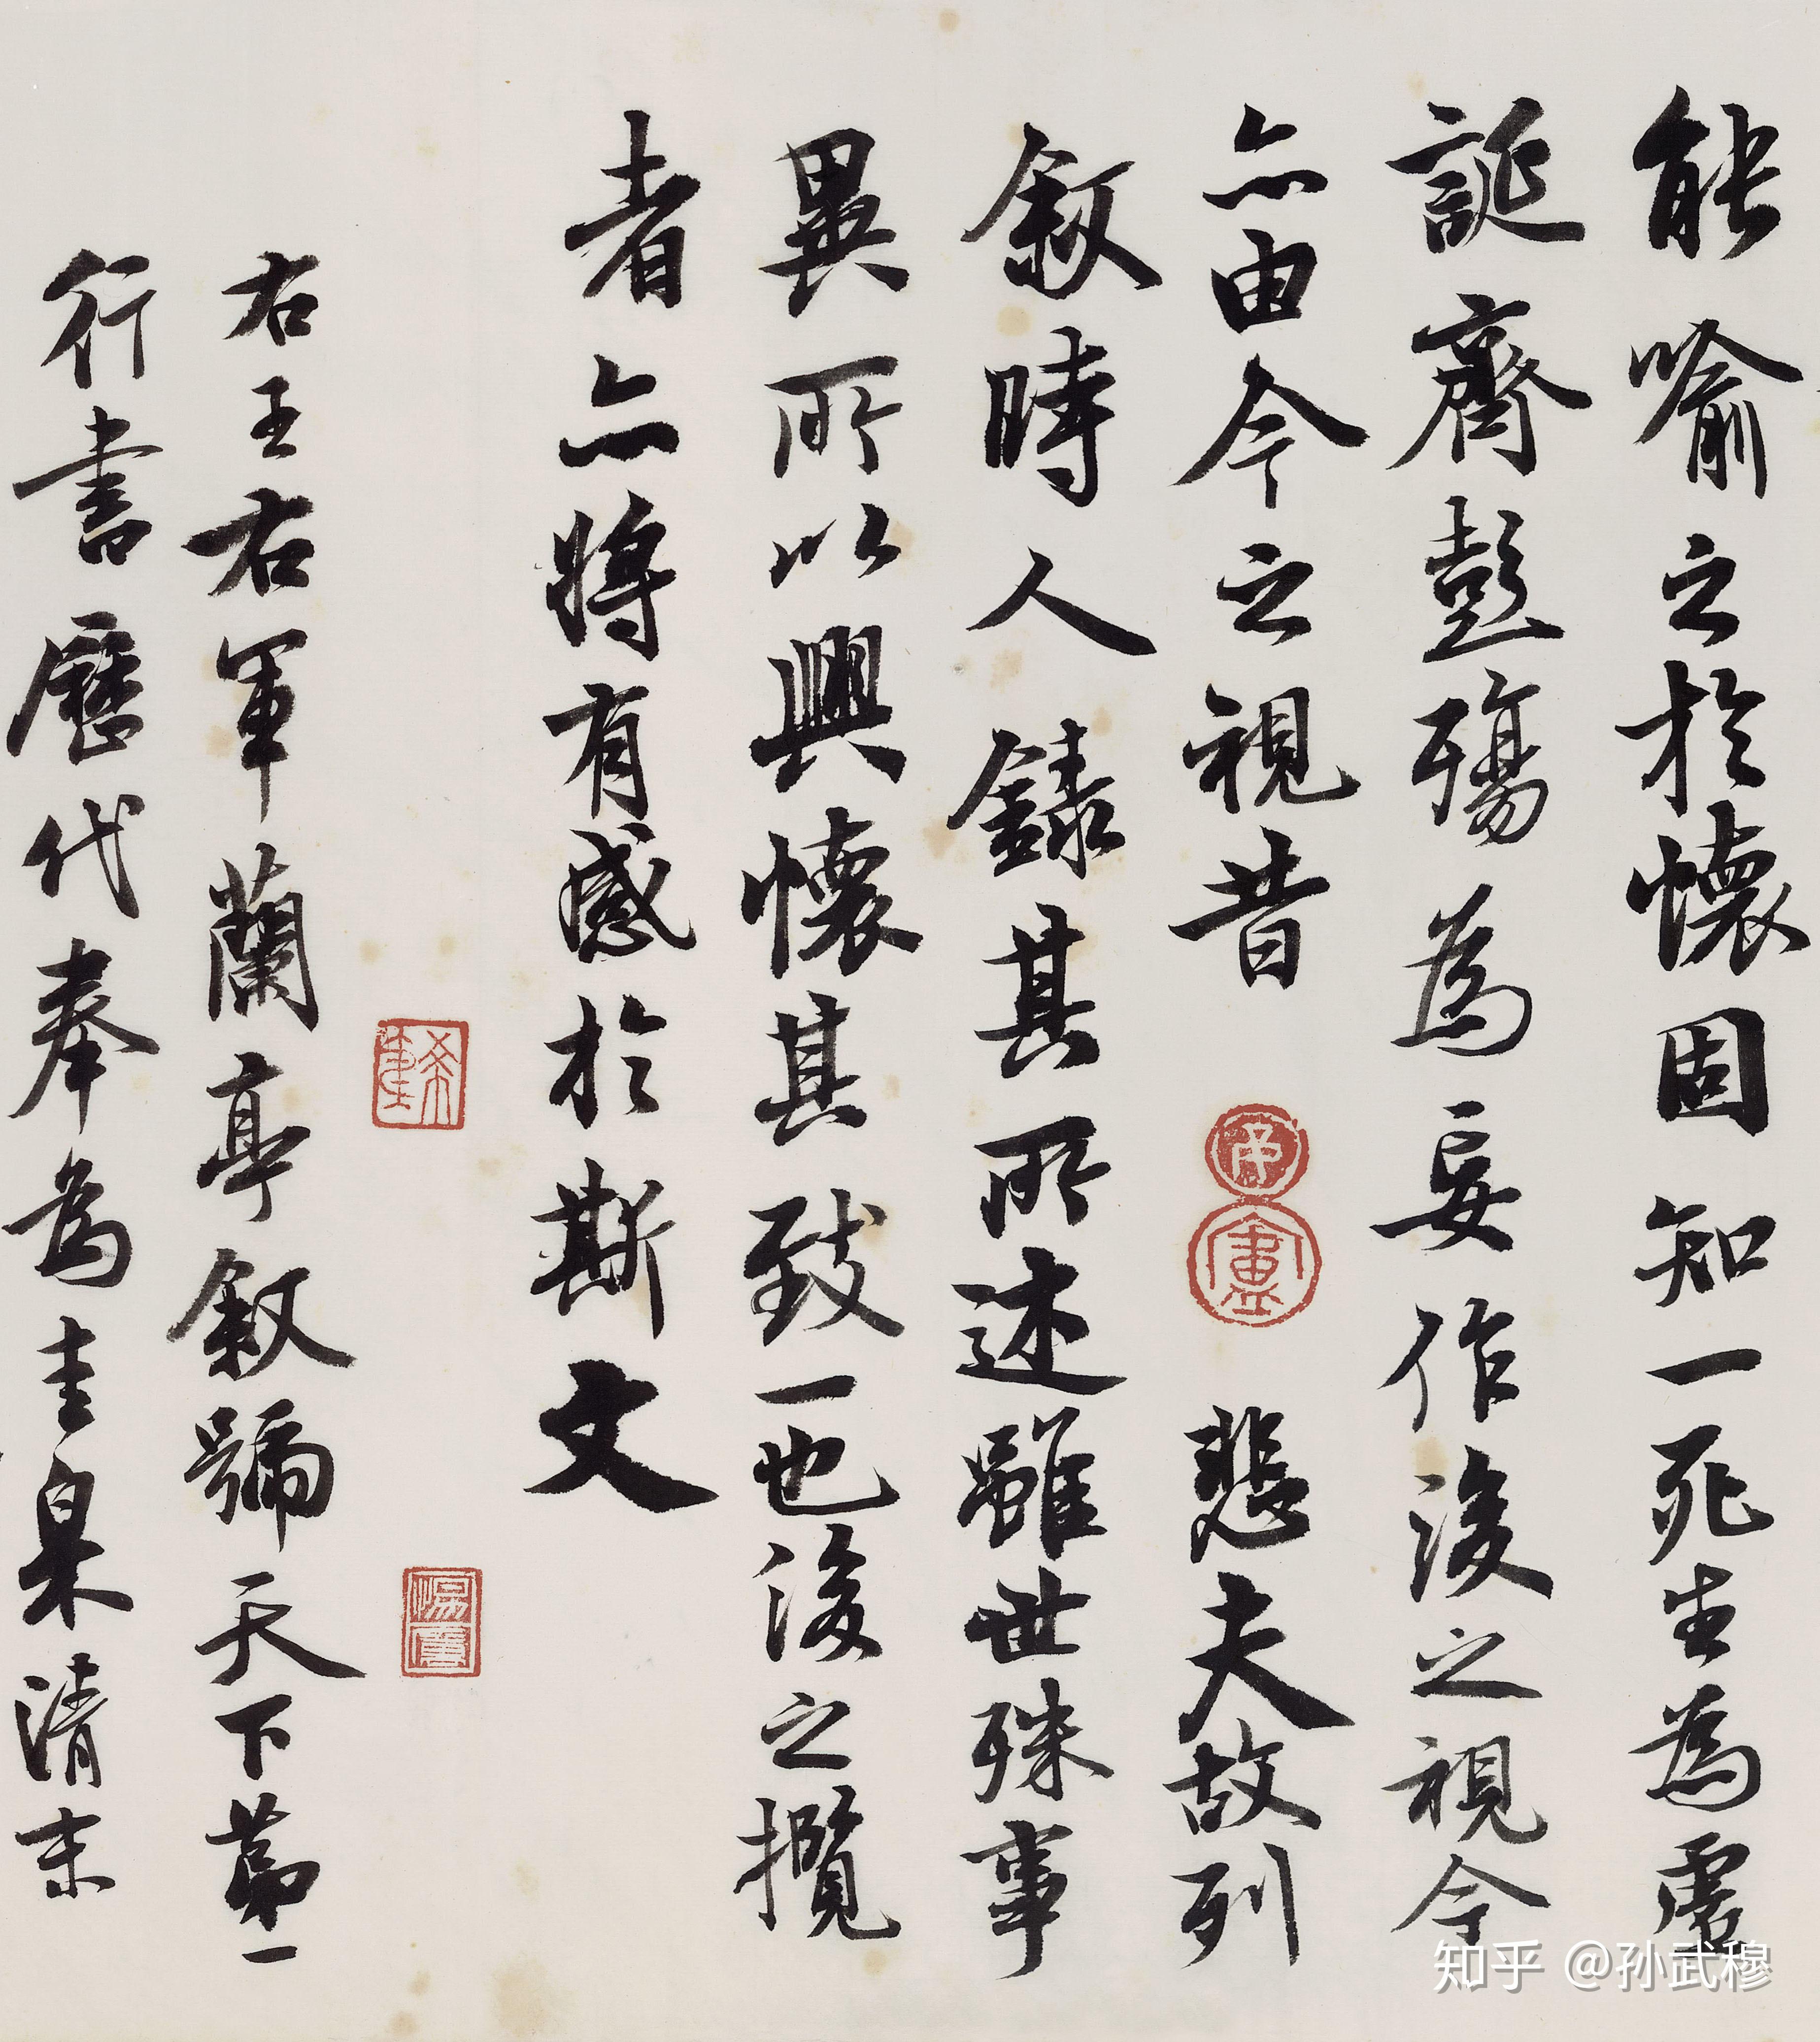 能喻之於懷固知一死生為虛
誕齊彭殤為妄作後之視今
亦由今之視昔 悲夫故列
敘時人錄其所述雖世殊事
異所以興懷其致一也後之攬
者亦將有感於斯文
右王右軍蘭亭敘號天下第一
行書歷代奉為圭臬清末
知乎 @孙武穆